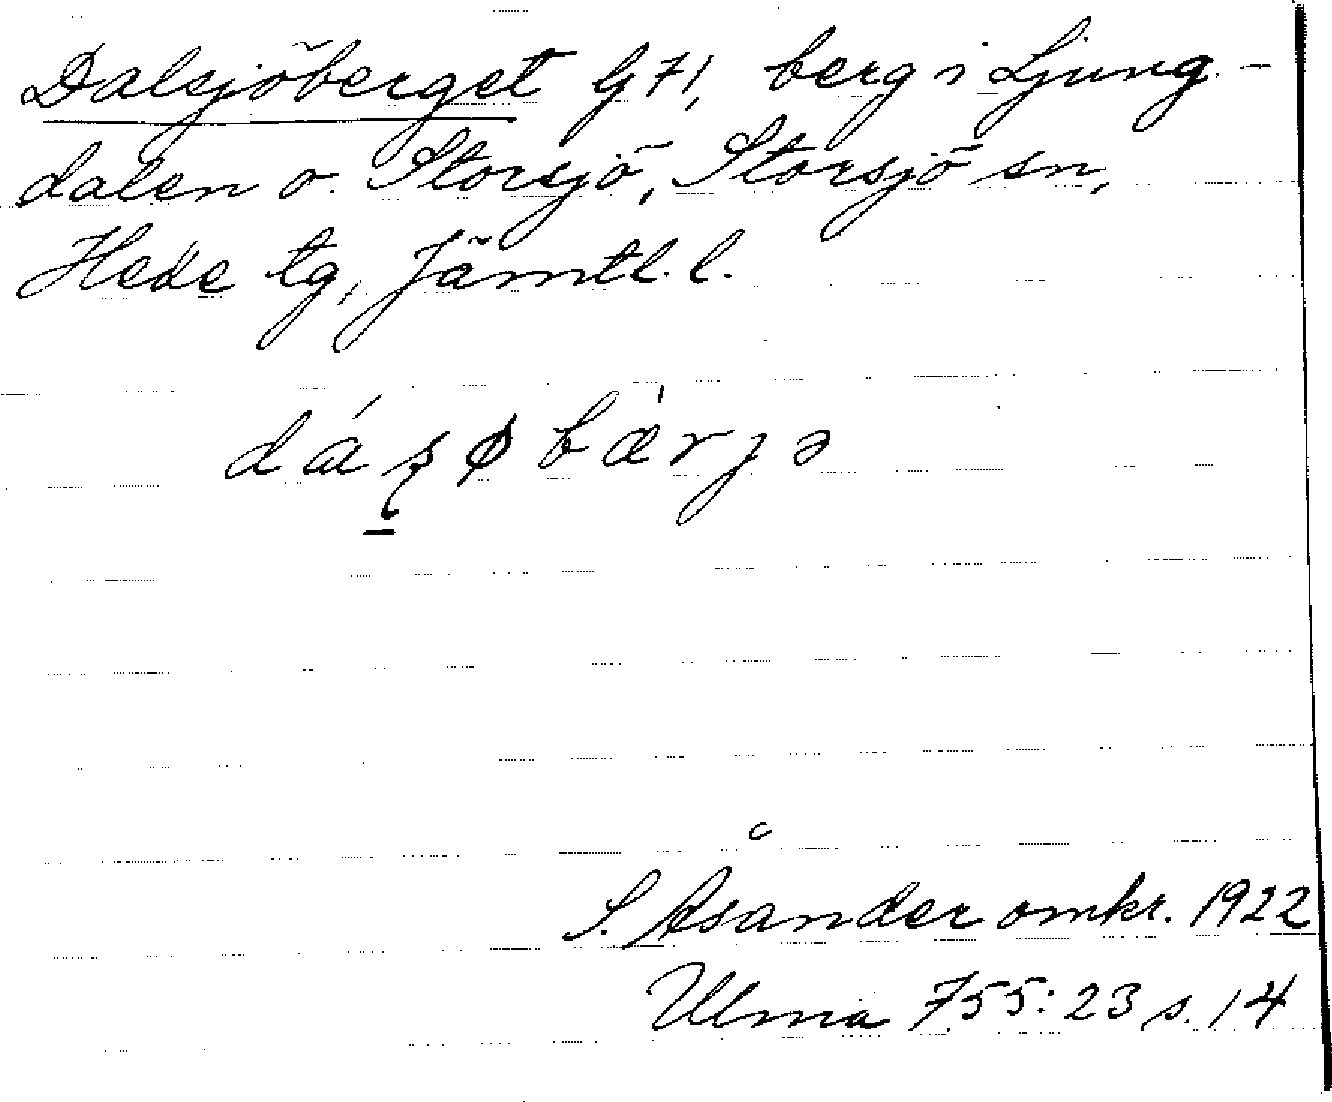 Dalsjöberget G 71, berg i Ljung-
dalen o. Storsjö, Storsjö sn,
Hede tg, Jämtl. l.
dáʂøbærjə
S. Åsander omkr. 1922
Ulma 755:23 s. 14